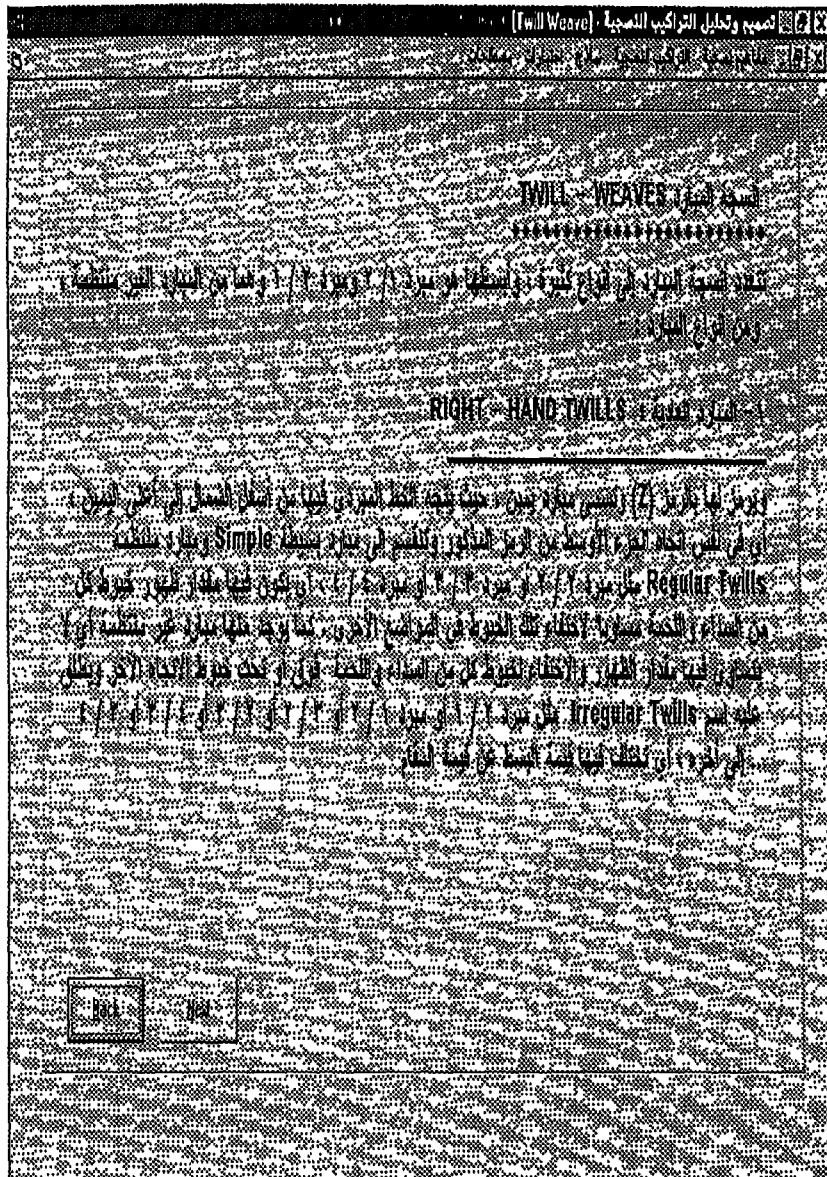 تصميم وتحليل التراكيب النسجية - [Twill Weave]
أنسجة المبارد TWILL - WEAVES
************************
تتعدد أنسجة المبارد إلى أنواع كثيرة ، وأبسطها هو مبرد ١/ ٢ ومبرد ٢ / ١ وهما من المبارد الغير منتظمة ،
ومن أنواع المبارد : -
١- المبارد العادية : RIGHT - HAND TWILLS
ويرمز لها بالرمز (Z) وتسمى مبارد يمين ، حيث يتجه الخط المبردى فيها من أسفل الشمال إلى أعلى اليمين ،
أى فى نفس اتجاه الجزء الأوسط من الرمز المذكور وتنقسم إلى مبارد بسيطة Simple ومبارد منتظمة
Regular Twills مثل مبرد ٢ / ٢ أو مبرد ٣ / ٣ أو مبرد ٤ / ٤ ، أى يكون فيها مقدار ظهور خيوط كل
من السداء واللحمة مساويا لاختفاء تلك الخيوط فى المواضع الأخرى ، كما يوجد منها مبارد غير منتظمة أى لا
يتساوى فيها مقدار الظهور والاختفاء لخيوط كل من السداء واللحمة فوق أو تحت خيوط الاتجاه الآخر ويطلق
عليه اسم Irregular Twills مثل مبرد
إلى آخره ، أى تختلف فيها قيمة البسط عن قيمة المقام
Back
Next